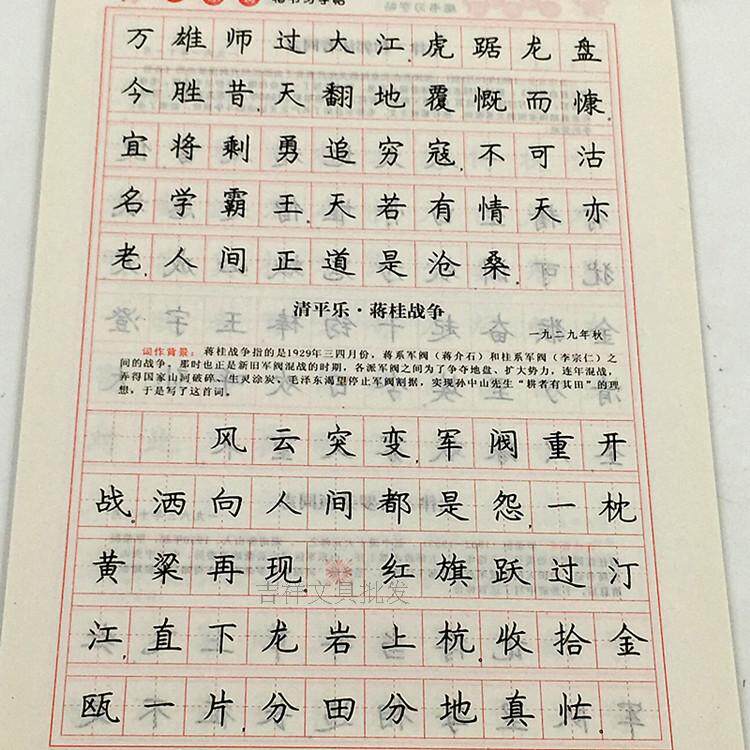 楷书习字帖
万雄师过大江.虎踞龙盘
今胜昔.天翻地覆慨而慷.
宜将剩勇追穷寇.不可沽
名学霸王.天若有情天亦
老.人间正道是沧桑.
清平乐·蒋桂战争
一九二九年秋
词作背景：蒋桂战争指的是1929年三四月份，蒋系军阀（蒋介石）和桂系军阀（李宗仁）之
间的战争。那时也正是新旧军阀混战的时期，各派军阀之间为了争夺地盘、扩大势力，连年混战，
弄得国家山河破碎、生灵涂炭。毛泽东渴望停止军阀割据，实现孙中山先生“耕者有其田”的理
想，于是写了这首词。
风云突变.军阀重开
战.洒向人间都是怨.一枕
黄粱再现. 红旗跃过汀
江.直下龙岩上杭.收拾金
瓯一片.分田分地真忙.
吉祥文具批发